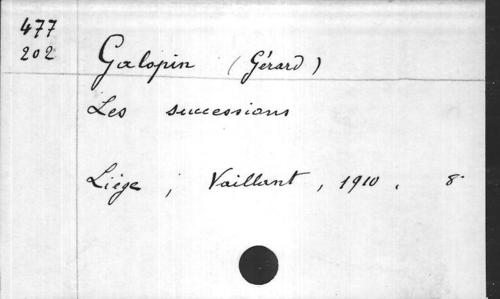 477
202
Galopin (Gérard)
Les successions
Liège, Vaillant, 1910. 8°